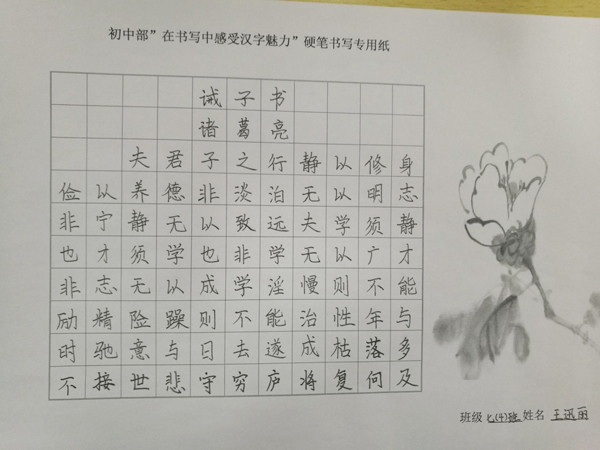 初中部”在书写中感受汉字魅力”硬笔书写专用纸
诫子书
诸葛亮
夫君子之行静以修身
俭以养德非淡泊无以明志
非宁静无以致远夫学须静
也才须学也非学无以广才
非志无以成学淫慢则不能
励精险躁则不能治性年与
时驰意与日去遂成枯落多
不接世悲守穷庐将复何及
班级 七(4)班 姓名 王迅丽